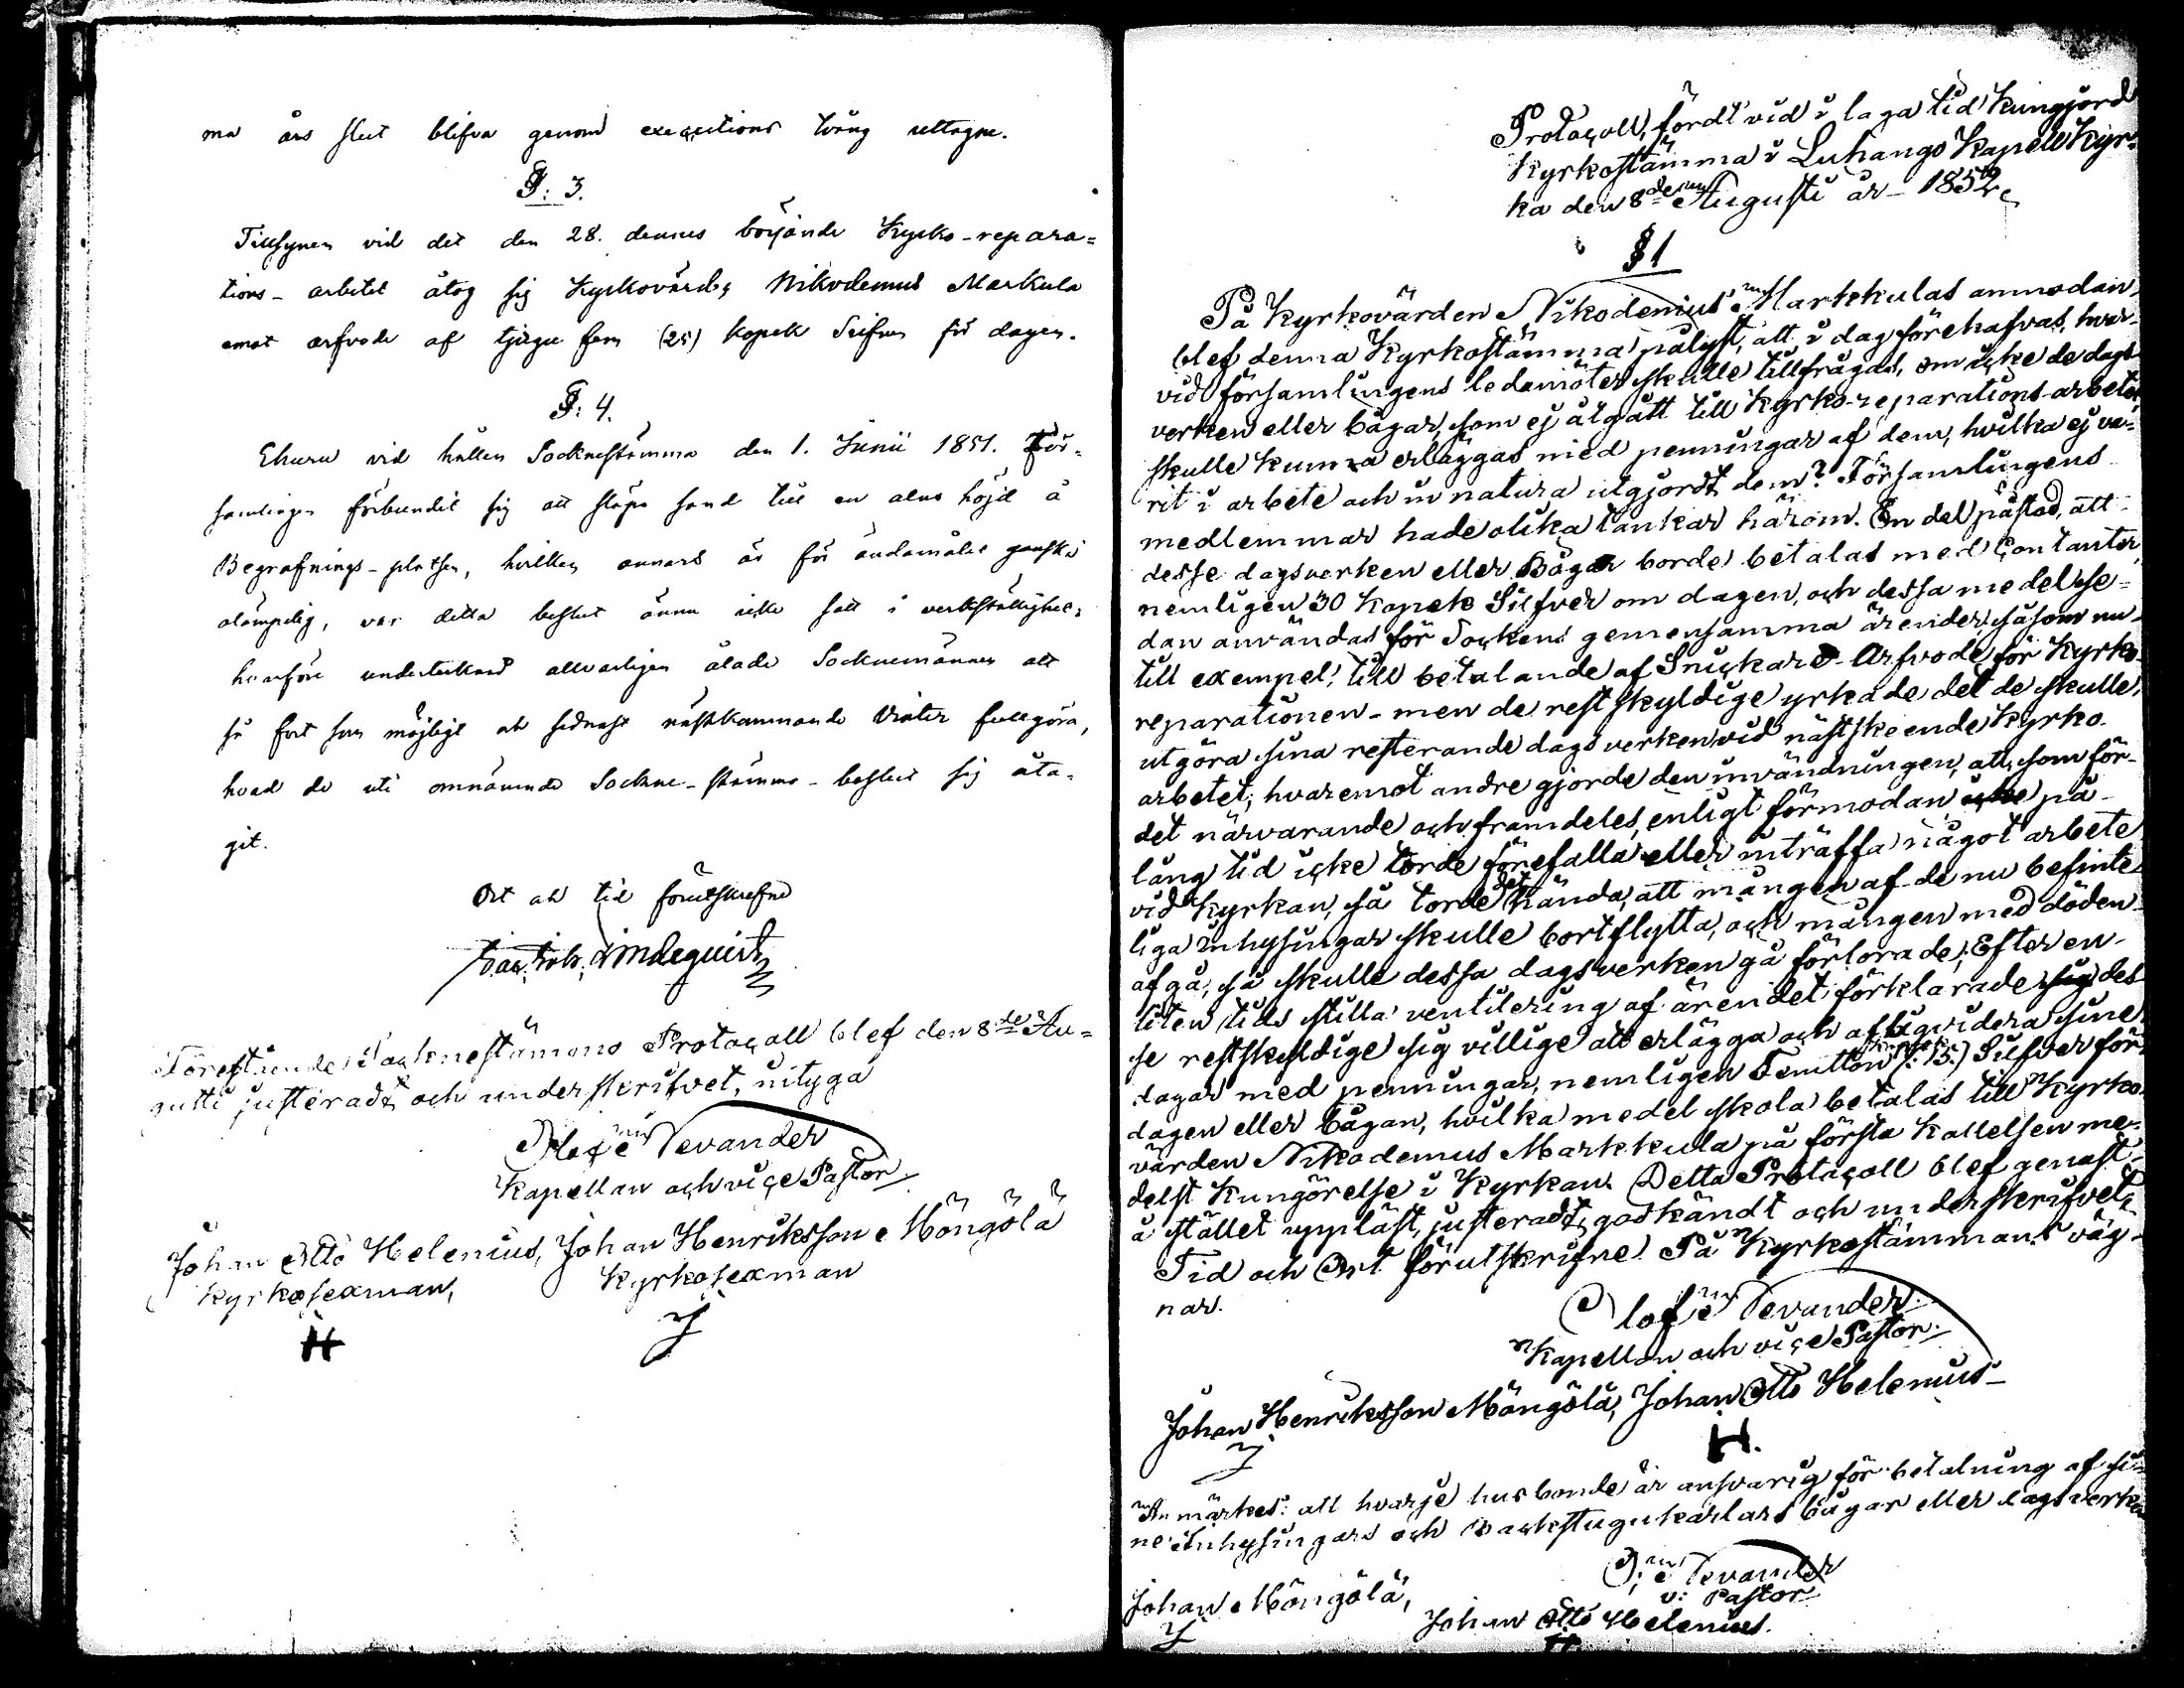 ma års slut blifva genom executions tvång uttagne.
§: 3.
Tillsynen vid det den 28. dennes börjande Kyrko-repara=
tions-arbetet åtog sig Kyrkovärden Nikodemus Markula
emot arfvode af tjugu fem (25) kopek Silfver för dagen.
§: 4.
Ehuru vid hållen Sockenstämma den 1. Junii 1851. För-
samlingen förbundit sig att släpa sand till en alns höjd å
Begrafnings-platsen, hvilken annars är för ändamålet ganska
olämpelig, var detta beslut ännu icke satt i verkställighet;
hvarföre undertecknad allvarligen ålade Socknemännen att
så fort som möjligt och sednast nästkommande Vinter fullgöra,
hvad de uti omnämnde Sockne-stämmo-beslut sig åta-
git.
Ort och tid förutskrefne
Jac. Joh. Lindequist
Förestående Socknestämmo Protocoll blef den 8de Au=
gusti justeradt och underskrifvet, intyga
Olof Nevander
Kapellan och vice Pastor
Johan Otto Helenius, Johan Henriksson Möngölä
Kyrkosexman, Kyrkosexman
H
Protocoll, fördt vid i laga tid kungjord
Kyrkostämma i Luhango Kapell Kyr=
ka den 8de Augusti år 1852.
§ 1
På Kyrkovärden Nikodemus Markkulas anmodan,
blef denna Kyrkostämma pålyst, att i dag förehafvas, hvar-
vid församlingens ledamöter skulle tillfrågas, om icke de dags-
verken eller bågar, som ej åtgått till Kyrko-reparations-arbetet,
skulle kunna erläggas med penningar af dem, hvilka ej va=
rit i arbete och in natura utgjordt dem? Församlingens
medlemmar hade olika tankar härom. En del påstod, att
desse dagsverken eller Bågar borde betalas med Contanter,
nemligen 30 kopek Silfver om dagen, och dessa medel se=
dan användas för Sockens gemensamma ärender, såsom nu
till exempel, till betalande af Snickare-Arfvode för Kyrko-
reparationen - men de restskyldige yrkade det de skulle
utgöra sina resterande dagsverken vid nästskeende Kyrko-
arbetet; hvaremot andre gjorde den invändningen, att, som för-
det närvarande och framdeles, enligt förmodan, icke på
lång tid icke torde förefalla eller inträffa något arbete
vid Kyrkan, så torde det hända, att mången af de nu befinte-
liga inhysingar skulle bortflytta, och mången med döden
afgå, så skulle dessa dagsverken gå förlorade; Efter en
liten tids stilla ventilering af ärendet förklarade sig des-
se restskyldige sig villige att erlägga och afliqvidera sine
dagar med penningar, nemligen Femtton kopek (: 15:) Silfver för
dagen eller bågan, hvilka medel skola betalas till Kyrko-
värden Nikodemus Markkula på första kallelsen me=
delst kungörelse i Kyrkan. Detta Protocoll blef genast
å stället uppläst, justeradt, godkändt och underskrifvet.
Tid och Ort förutskrifne. På Kyrkostämmans väg-
nar.
Olof Nevander.
Kapellan och vice Pastor.
Johan Henriksson Möngölä, Johan Otto Helenius
H.
Anmärkes: att hvarje husbonde är ansvarig för betalning af si-
ne Inhysingars och Backstugukarlars bågar eller dagsverken
O: Nevander
v: Pastor
Johan Möngölä,
Johan Otto Helenius.
H